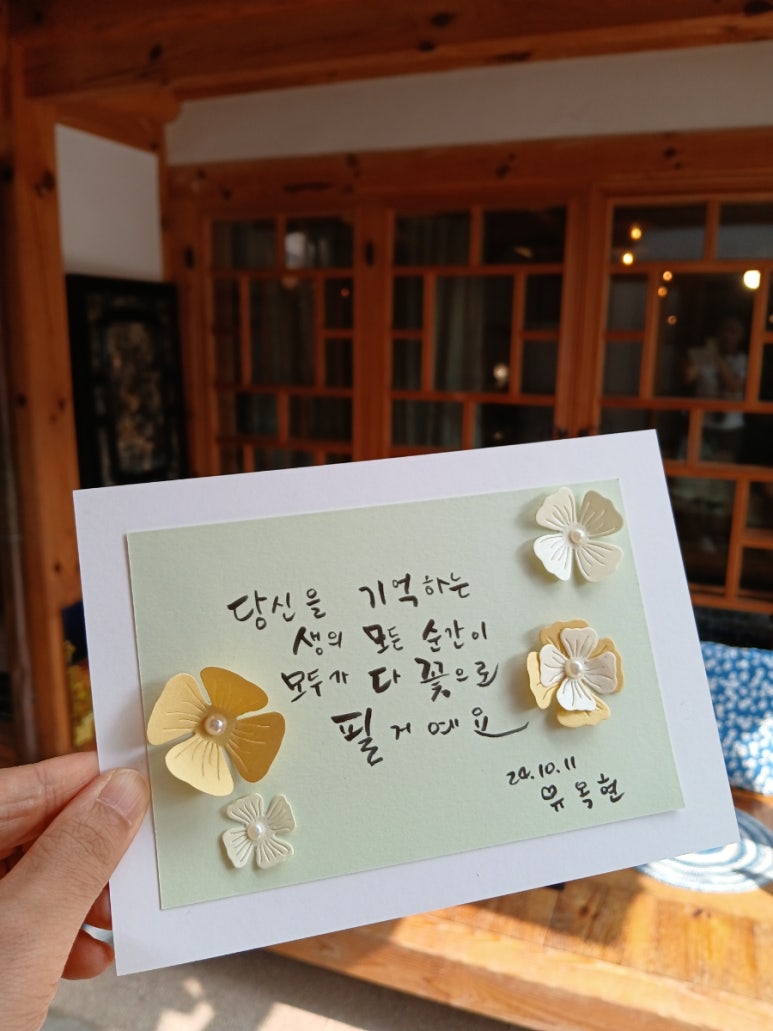 당신을 기억하는
생의 모든 순간이
모두가 다 꽃으로
필거예요
24.10.11
유옥현